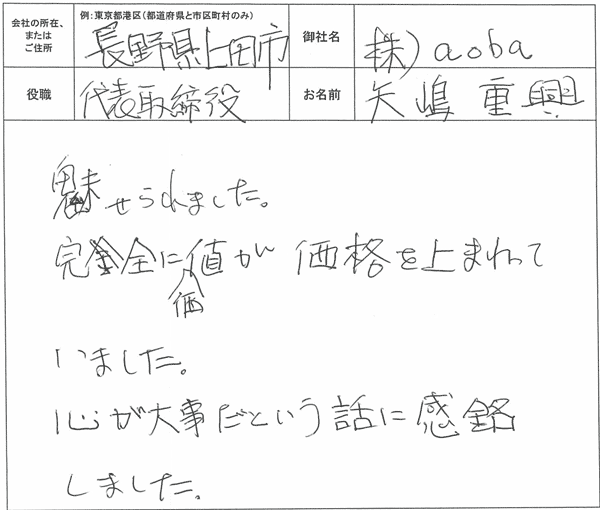 会社の所在、
または
ご住所
例:東京都港区(都道府県と市区町村のみ)
長野県上田市
御社名
株)aoba
役職
代表取締役
お名前
矢嶋 重興
魅せられました。
完全に価値が 価格を上まわって
いました。
心が大事だという話に感銘
しました。